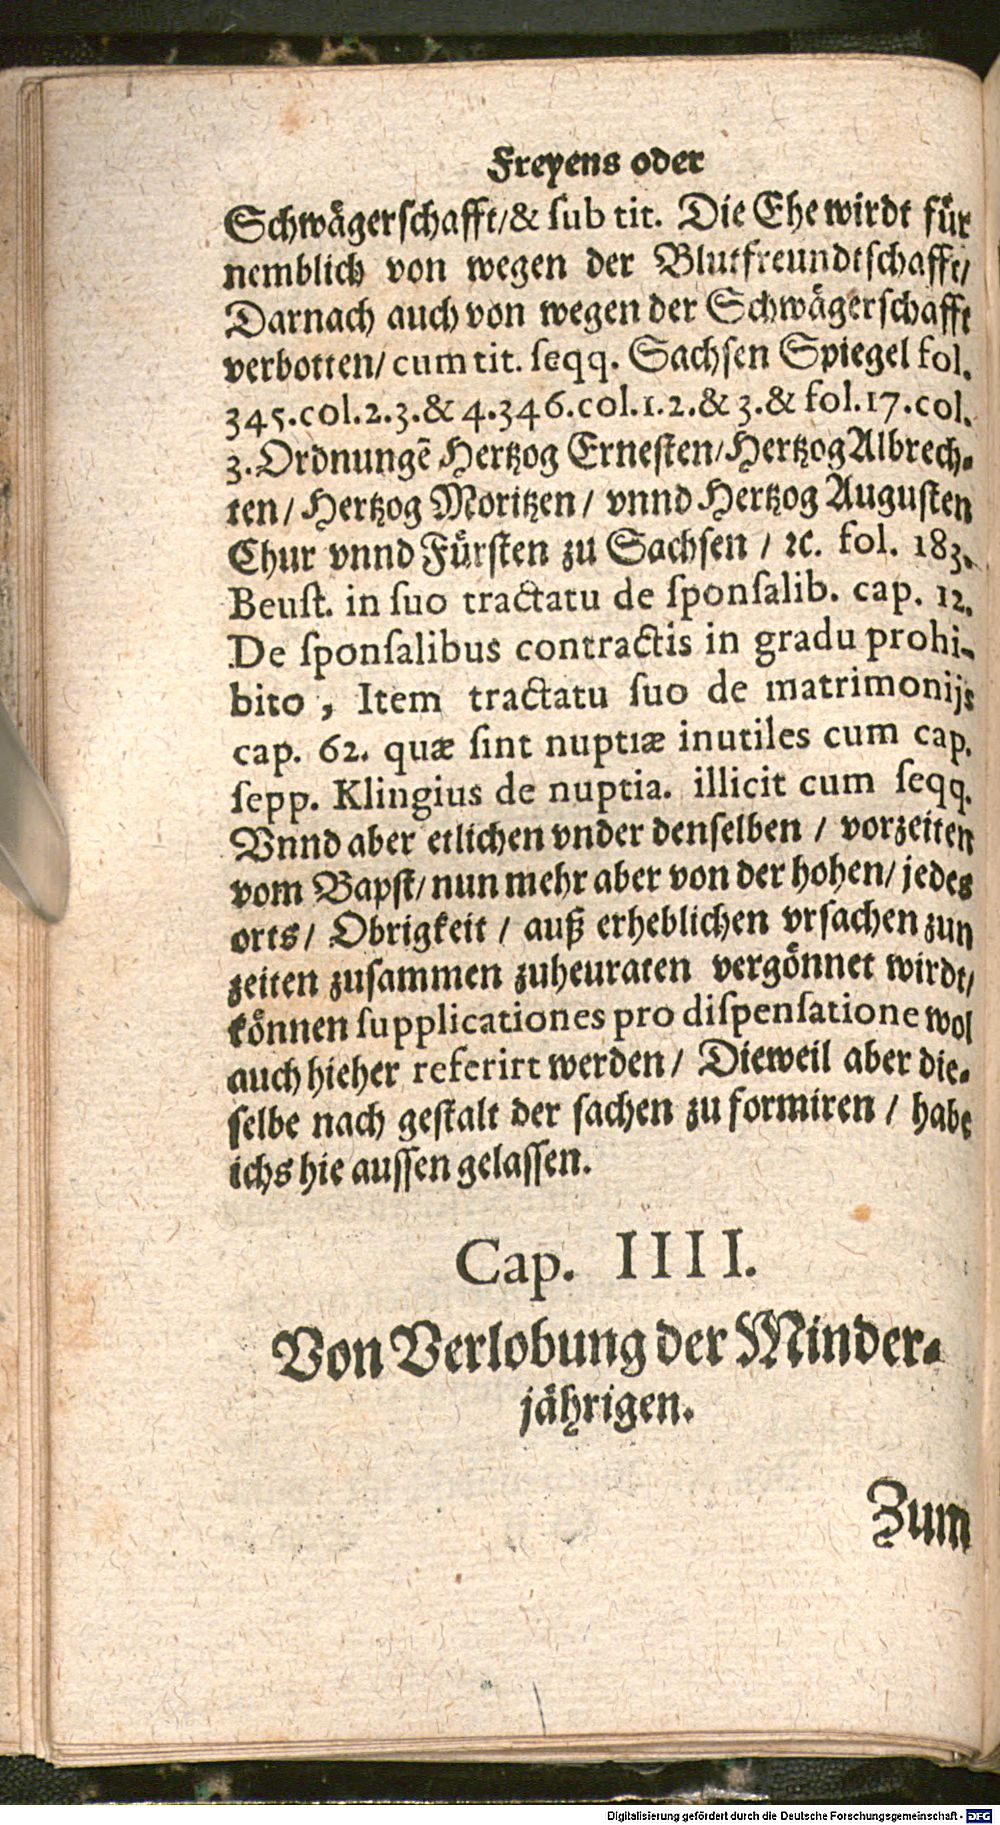 Freyens oder
Schwägerschafft/& ſub tit. Die Ehe wirdt für
nemblich von wegen der Blutfreundtſchafft/
Darnach auch von wegen der Schwägerſchafft
verbotten/ cum tit. ſeqq. Sachſen Spiegel fol.
345.col.2.3.& 4.346.col.1.2.& 3.& fol.17.col.
3. Ordnungē Hertzog Erneſten/Hertzog Albrech-
ten/ Hertzog Moritzen/ vnnd Hertzog Auguſten
Chur vnnd Fürſten zu Sachſen / ꝛc. fol. 183.
Beuſt. in ſuo tractatu de ſponſalib. cap. 12.
De ſponſalibus contractis in gradu prohi-
bito , Item tractatu ſuo de matrimonijs
cap. 62. quæ ſint nuptiæ inutiles cum cap.
ſepp. Klingius de nuptia. illicit cum ſeqq.
Vnnd aber etlichen vnder denſelben / vorzeiten
vom Bapſt/ nun mehr aber von der hohen/ jedes
orts/ Obrigkeit / auß erheblichen vrſachen zun
zeiten zuſammen zuheuraten vergönnet wirdt/
können ſupplicationes pro diſpenſatione wol
auch hieher referirt werden/ Dieweil aber die-
ſelbe nach geſtalt der ſachen zu formiren / habe
ichs hie auſſen gelaſſen.
Cap. IIII.
Von Verlobung der Minder-
jährigen.
Zum
Digitalisierung gefördert durch die Deutsche Forschungsgemeinschaft - DFG